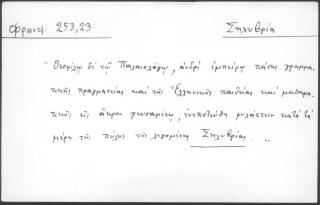 Φραντζ. 253,23
Σηλυβρία
"Θεοφίλῳ δὲ τῷ Παλαιολόγῳ, ἀνδρὶ ἐμπείρῳ πάσης γραμμα-
τικῆς πραγματείας καὶ τῆς Ἑλληνικῆς παιδείας καὶ μαθημα-
τικῆς εἰς ἄκρον γευσαμένῳ, ἐνεπιστεύθη φυλάττειν κατὰ τὰ
μέρη τῆς πύλης τῆς λεγομένης Σηλυβρίας. „